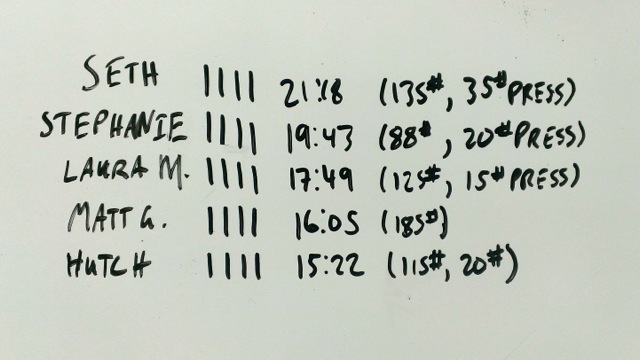 SETH |||| 21:18 (135#, 35# PRESS)
STEPHANIE |||| 19:43 (88#, 20# PRESS)
LAURA M. |||| 17:49 (125#, 15# PRESS)
MATT G. |||| 16:05 (185#)
HUTCH |||| 15:22 (115#, 20#)